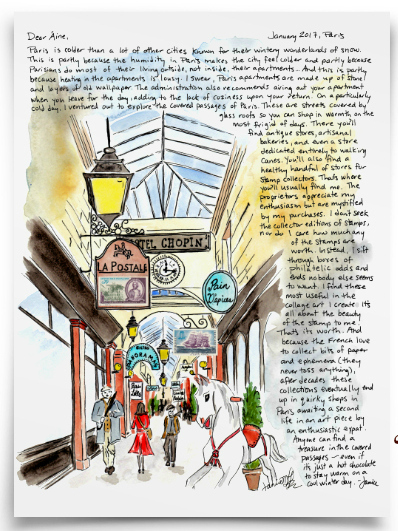 Dear Áine, January 2017, Paris
Paris is colder than a lot of other cities known for their wintery wonderlands of snow.
This is partly because the humidity in Paris makes the city feel colder and partly because
Parisians do most of their living outside, not inside, their apartments. And this is partly
because heating in the apartments is lousy. I swear, Paris apartments are made up of stone
and layers of old wallpaper. The administration also recommends airing out your apartment
when you leave for the day, adding to the lack of cosiness upon your return. On a particularly
cold day, I ventured out to explore the covered passages of Paris. These are streets covered by
glass roofs so you can shop in warmth on the
most frigid of days. There you'll
find antique stores, artisanal
bakeries, and even a store
dedicated entirely to walking
canes. You'll also find a
healthy handful of stores for
stamp collectors. That's where
you'll usually find me. The
proprietors appreciate my
enthusiasm but are mystified
by my purchases. I don't seek
the collector editions of stamps,
nor do I care how much any
of the stamps are
worth. Instead, I sift
through boxes of
philatelic odds and
ends nobody else seems
to want. I find these
most useful in the
collage art I create. It's
all about the beauty
of the stamp to me.
That's its worth. And
because the French love
to collect bits of paper
and ephemera (they
never toss anything),
after decades these
collections eventually end
up in quirky shops in
Paris awaiting a second
life in an art piece by
an enthusiastic expat.
Anyone can find a
treasure in the covered
passages – even if
it's just a hot chocolate
to stay warm on a
cool winter day. Janice
HOTEL CHOPIN
LA POSTALE
Pain
d'épices